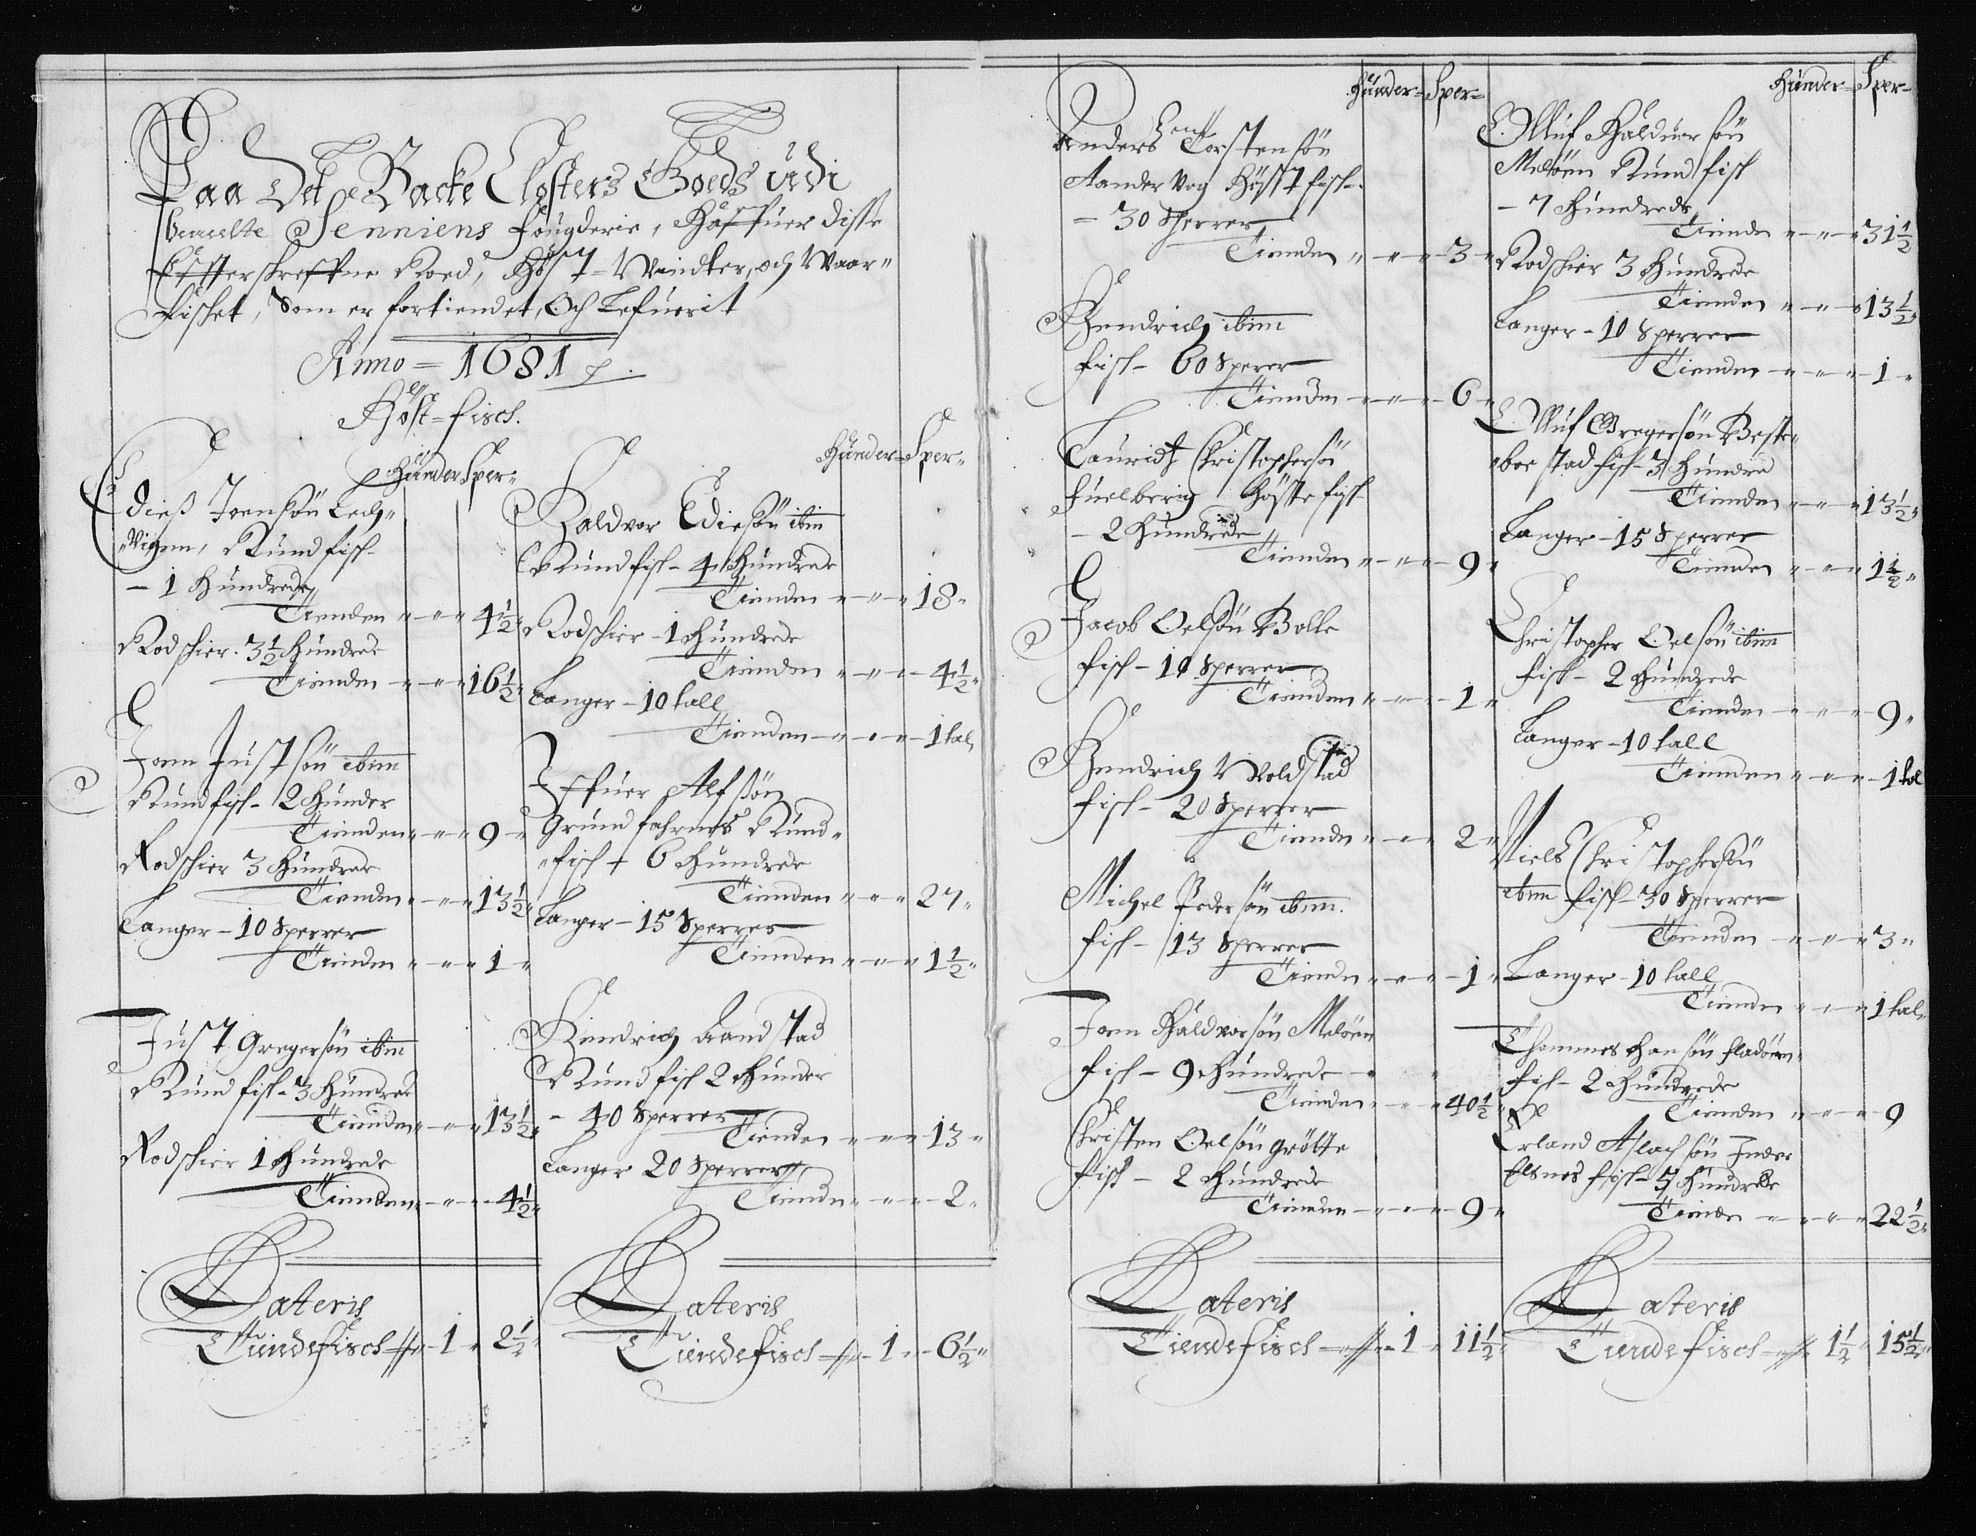 Paa Det Backe Closters Goeds udi
bemelte Senniens fougderie, Haffuer disse
Effterskreffne Roed, Höst- Vindter, och Vaar-
fischet, Som er fortiendet, Och Lefuerit
Anno = 1681 p.
Höst=fisch.
Hunder Sper-
Edies Joensön Lech-
Vigen, Rundfisch
- 1 Hundrede
Tienden " - " - " 4½
Rodschier. 3½ Hundrede
Tienden " - " - " 16½
Joen Justsön ibim
Rundfisch- 2 Hunder
Tienden " - " - " 9
Rodschier 3 Hundrede
Tienden " - " - " 13½
Langer - 10 Sperrer
Tienden " - " - " 1
Just Gregersön ibim
Rundfisch- 3 Hundrede
Tienden " - " - " 13½
Rodschier 1 Hundrede
Tienden " - " - " 4½
Lateris
Tiendefisch - 1 - 2½
Hunder- Sper-
Haldvor Ediesön ibim
Rundfisch- 4 Hundrede
Tienden " - " - " 18
Rodschier - 1 Hundrede
Tienden " - " - " 4½
Langer - 10 tall
Tienden - " - " - 1 tal
Iffuer Alfsön
Grundfahrnes Rund-
fisch - 6 Hundrede
Tienden " - " - " 27
Langer - 15 Sperrer
Tienden " - " - " 1½
Hendrich Sandstad
Rundfisch 2 Hunder
- 40 Sperrer
Tienden " - " - " 13
Langer 20 Sperrer
Tienden " - " - " 2
Lateris
Tiendefisch - 1 - 6½
Hunder- Sper-
Anders Torstensön
Sandervog Höstfisch
- 30 Sperrer
Tienden " - " - " 3
Hendrich ibim
fisch - 60 Sperer
Tienden - " - " - 6
Lauridtz Christophersön
Fuelberig Höstefisch
- 2 Hundrede
Tienden " - " - " 9
Jacob Oelsön Bolle
fisch - 10 Sperrer
Tienden " - " - " 1
Hendrich Voldstad
fisch - 20 Sperrer
Tienden - " - " 2
Michel Pedersön ibim.
fisch - 13 Sperrer
Tienden " - " - " 1
Joen Haldvorsön Meløen
fisch - 9 Hundrede
Tienden " - " - " 40½
Christen Oelsön Grötte
fisch - 2 Hundrede
Tienden - " - " - 9
Lateris
Tiendefisch - 1 - 11½
Hunder- Sper-
Olluf Haldvorsön
Meløen Rundfisch
- 7 Hundrede
Tienden " - " - " 31½
Rodschier 3 Hundrede
Tienden " - " - " 13½
Langer - 10 Sperrer
Tienden - " - " - 1
Olluf Gregersön Beste-
boestad fisch- 3 Hundred
Tienden " - " - " 13½
Langer - 15 Sperrer
Tienden " - " - " 1½
Christopher Oelsön ibim
fisch - 2 Hundrede
Tienden - " - " - 9
Langer - 10 tall
Tienden - " - " - 1 tal
Niels Christophersön
ibim fisch- 30 Sperrer
Tienden - " - " - 3
Langer - 10 tall
Tienden " - " - " 1 tal
Thommes Hansön fladöen
fisch- 2 Hundrede
Tienden " - " - " 9
Erland Aslachsön Inder
Elsnes fisch- 5 Hundrede
Tienden - " - " - 22½
Lateris
Tiendefisch - 1½ - 15½